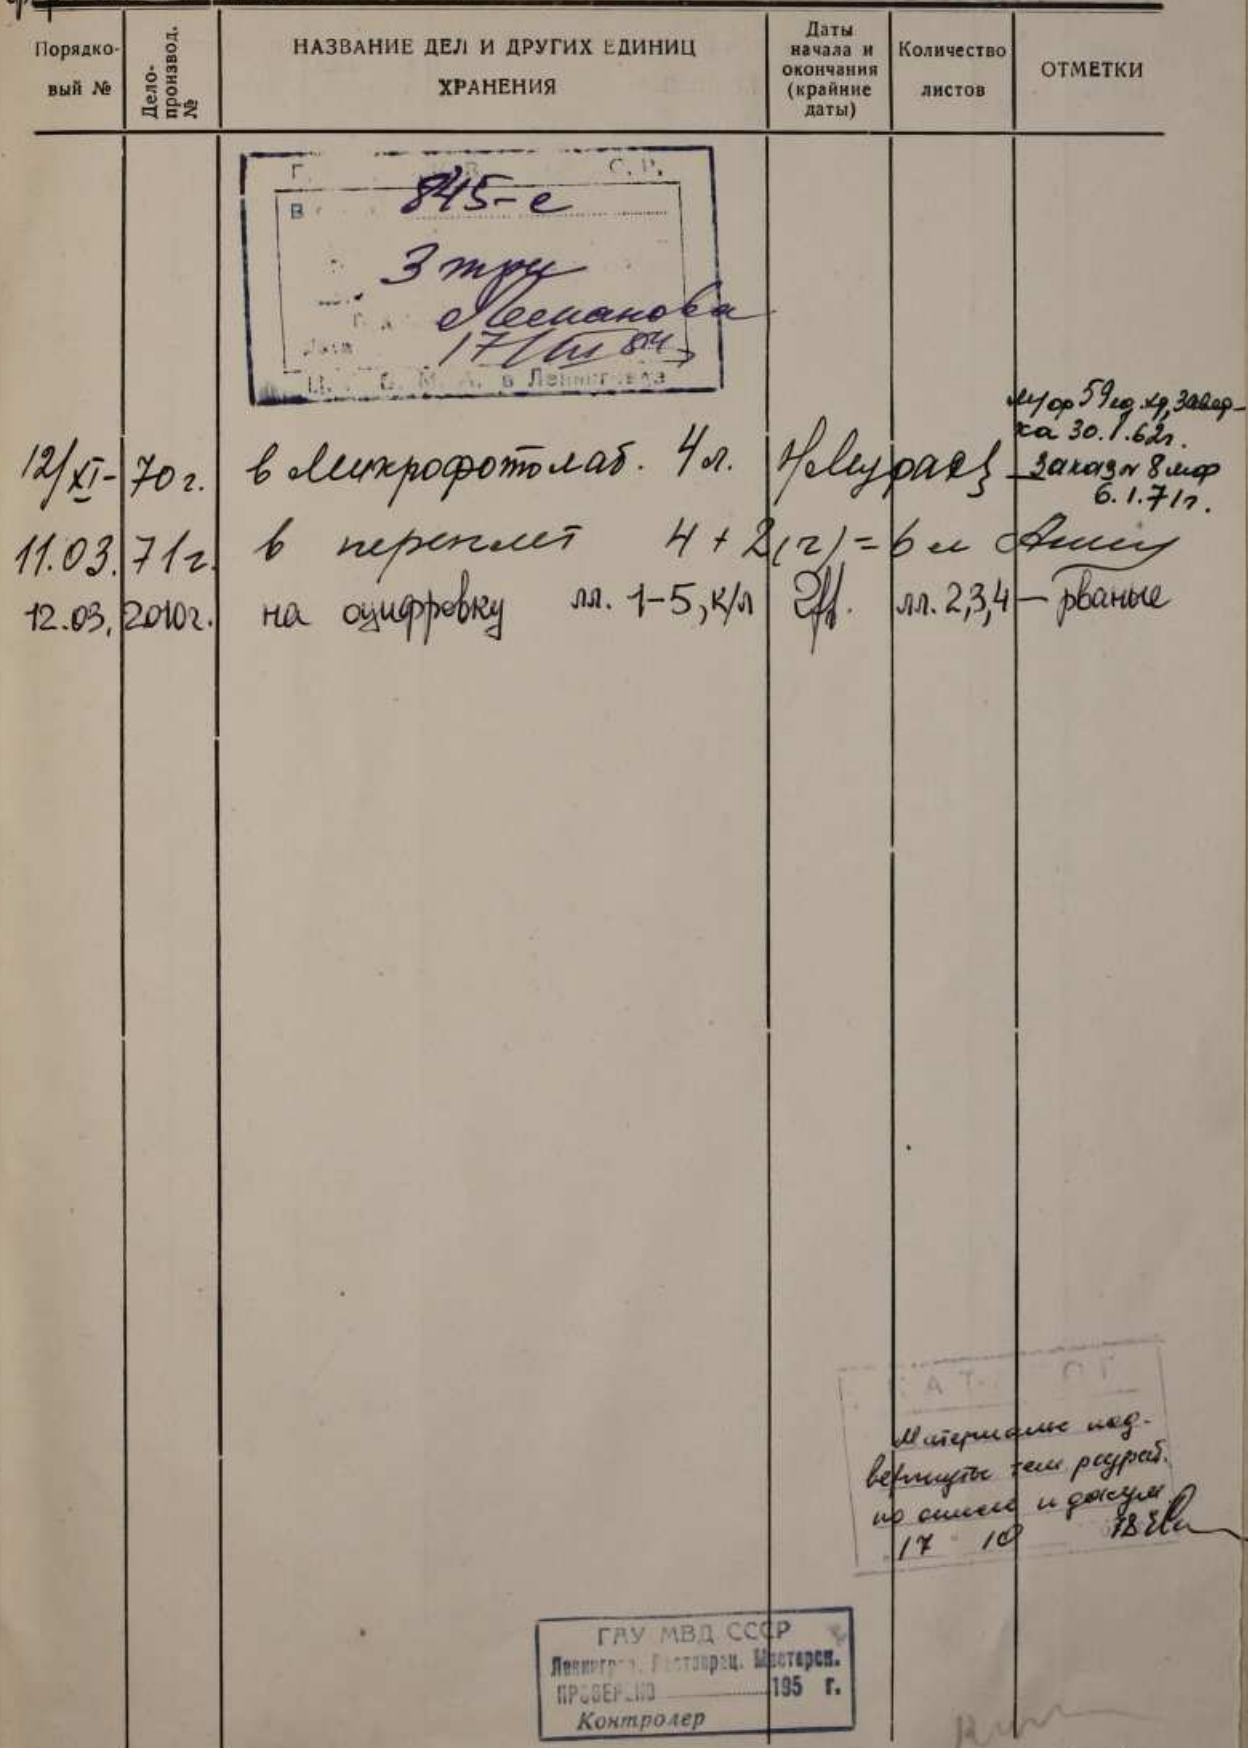 Порядко-
вый №
Дело-
производ.
№
НАЗВАНИЕ ДЕЛ И ДРУГИХ ЕДИНИЦ
ХРАНЕНИЯ
Даты
начала и
окончания
(крайние
даты)
Количество
листов
ОТМЕТКИ
845-е
3 три
17/III 84
в Ленинграде
59 ед. хр. завер-
ка 30.1.62г.
12/XI-70г. в Микрофотолаб. 4 л.
Заказ № 8 мф
6.1.71г.
11.03.71г. в переплет 4 + 2(г) = 6 л
12.03.2010г. на оцифровку лл. 1-5, к/л лл. 2,3,4 — рваные
Материалы под-
вергнуты тем разраб.
по описи и докум
17 10 78
ГАУ МВД СССР
Ленинград. Реставрац. Мастерск.
ПРОВЕРЕНО 195 г.
Контролер